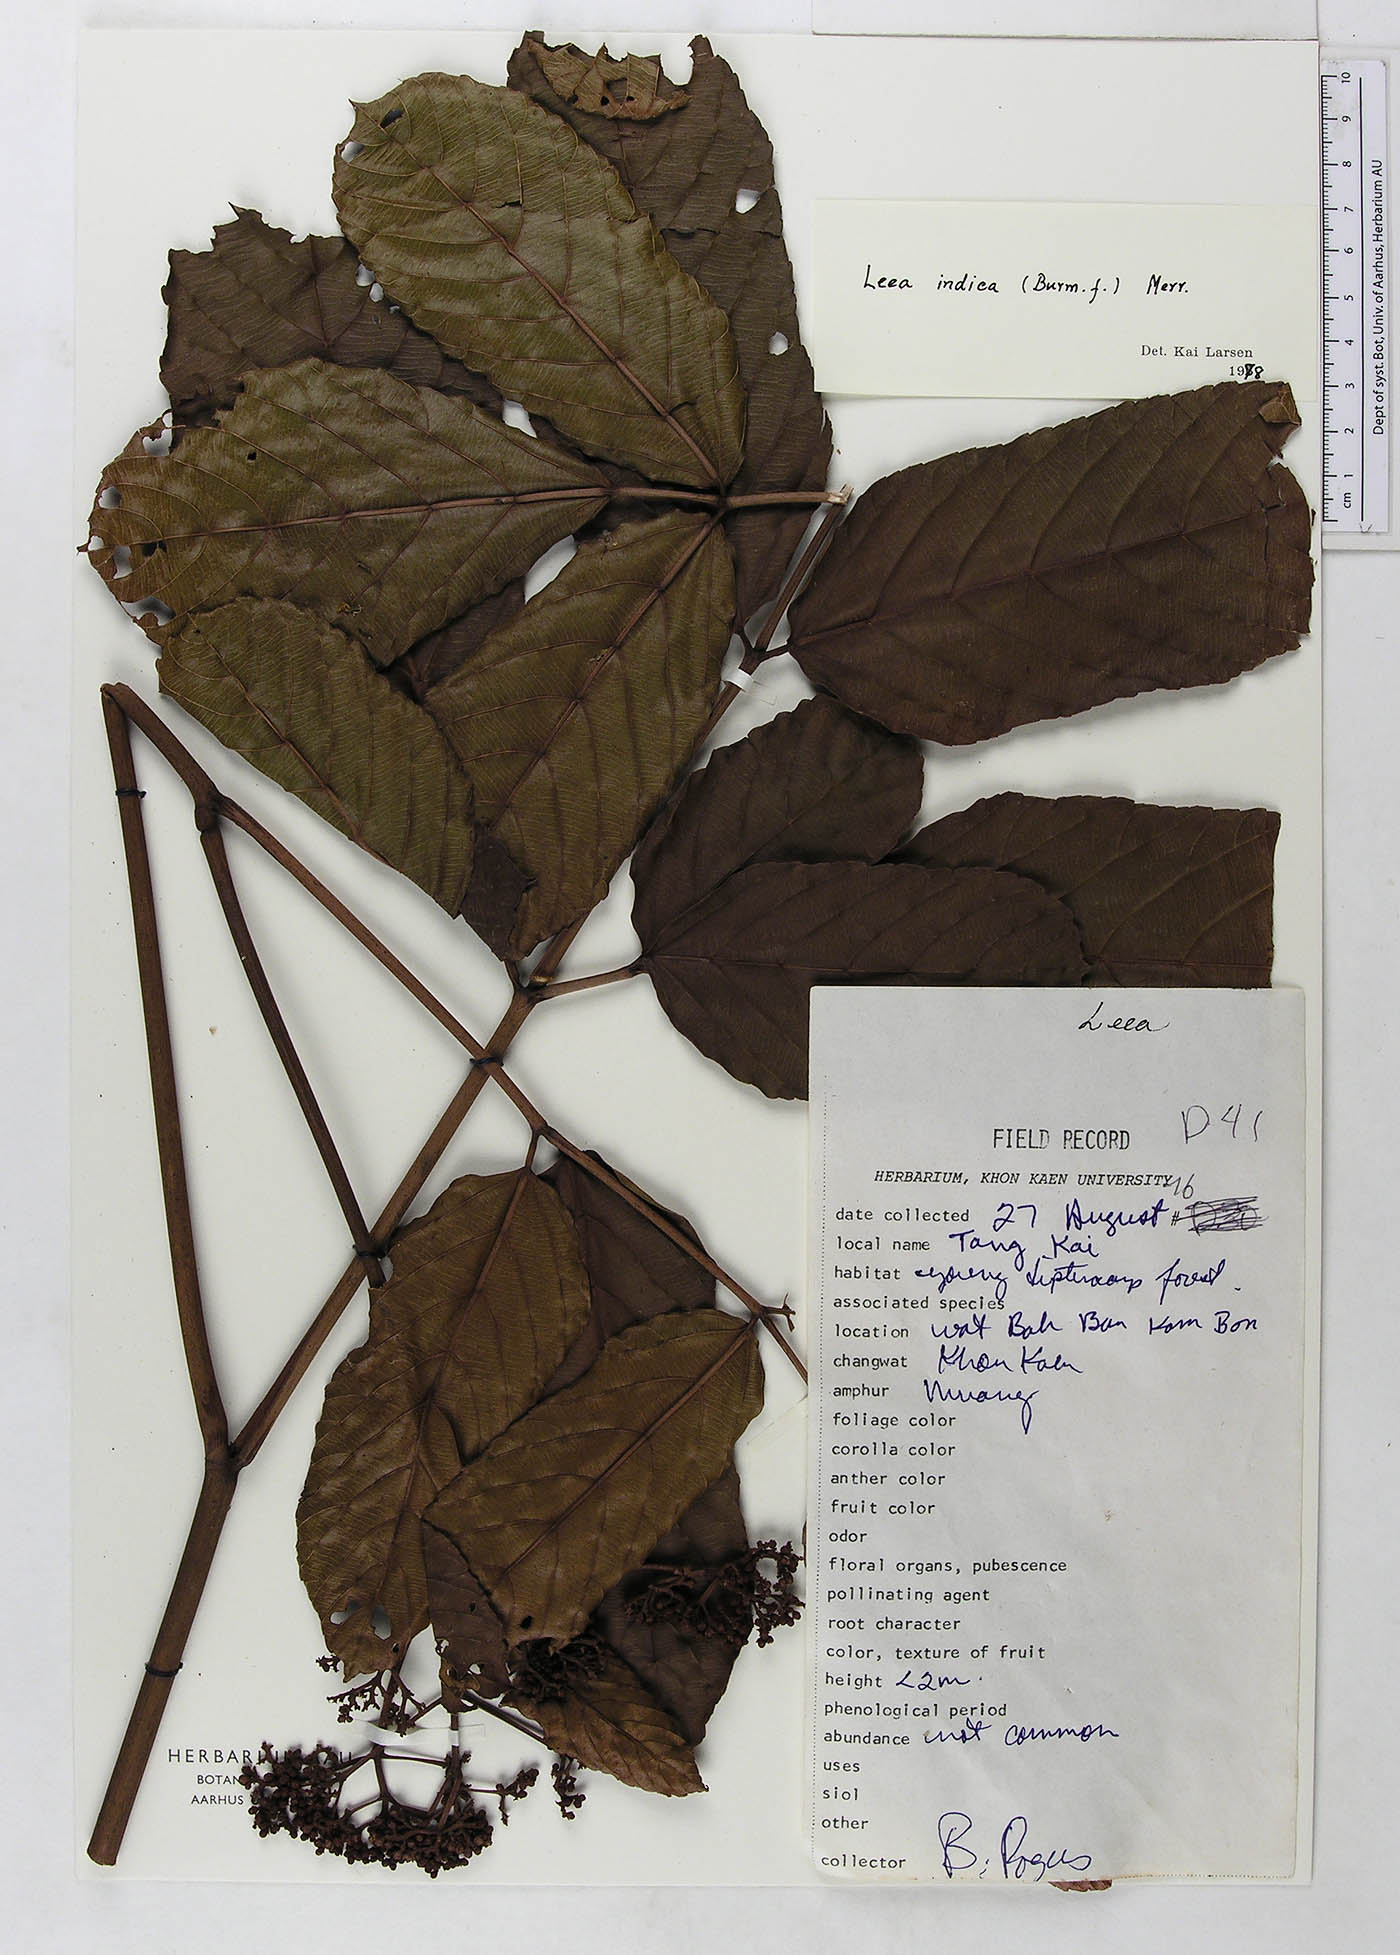 Leea indica (Burm.f.) Merr.
Det. Kai Larsen
1978
cm 1 2 3 4 5 6 7 8 9 10
Dept of syst. Bot, Univ. of Aarhus, Herbarium AU
Leea
D41
FIELD RECORD
HERBARIUM, KHON KAEN UNIVERSITY
date collected 27 August 76 #
local name Tang Kai
habitat young dipterocarp forest.
associated species
location Wat Bah Ban Kam Bon
changwat Khon Kaen
amphur Muang
foliage color
corolla color
anther color
fruit color
odor
floral organs, pubescence
pollinating agent
root character
color, texture of fruit
height <2m.
phenological period
abundance not common
uses
siol
other
collector B.
HERBARIUM AU
BOTAN
AARHUS